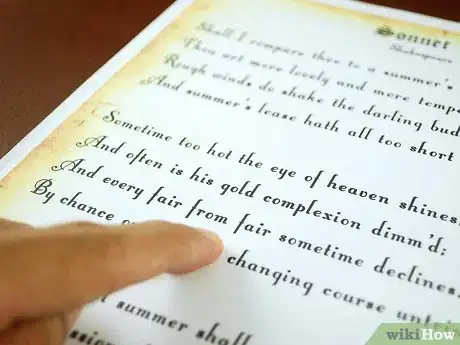 Sonnet
Shakespeare
Shall I compare thee to a summer's
Thou art more lovely and more tempe
Rough winds do shake the darling bud
And summer's lease hath all too short
Sometime too hot the eye of heaven shines,
And often is his gold complexion dimm'd;
And every fair from fair sometime declines,
By chance changing course untri
t summer shall
wikiHow